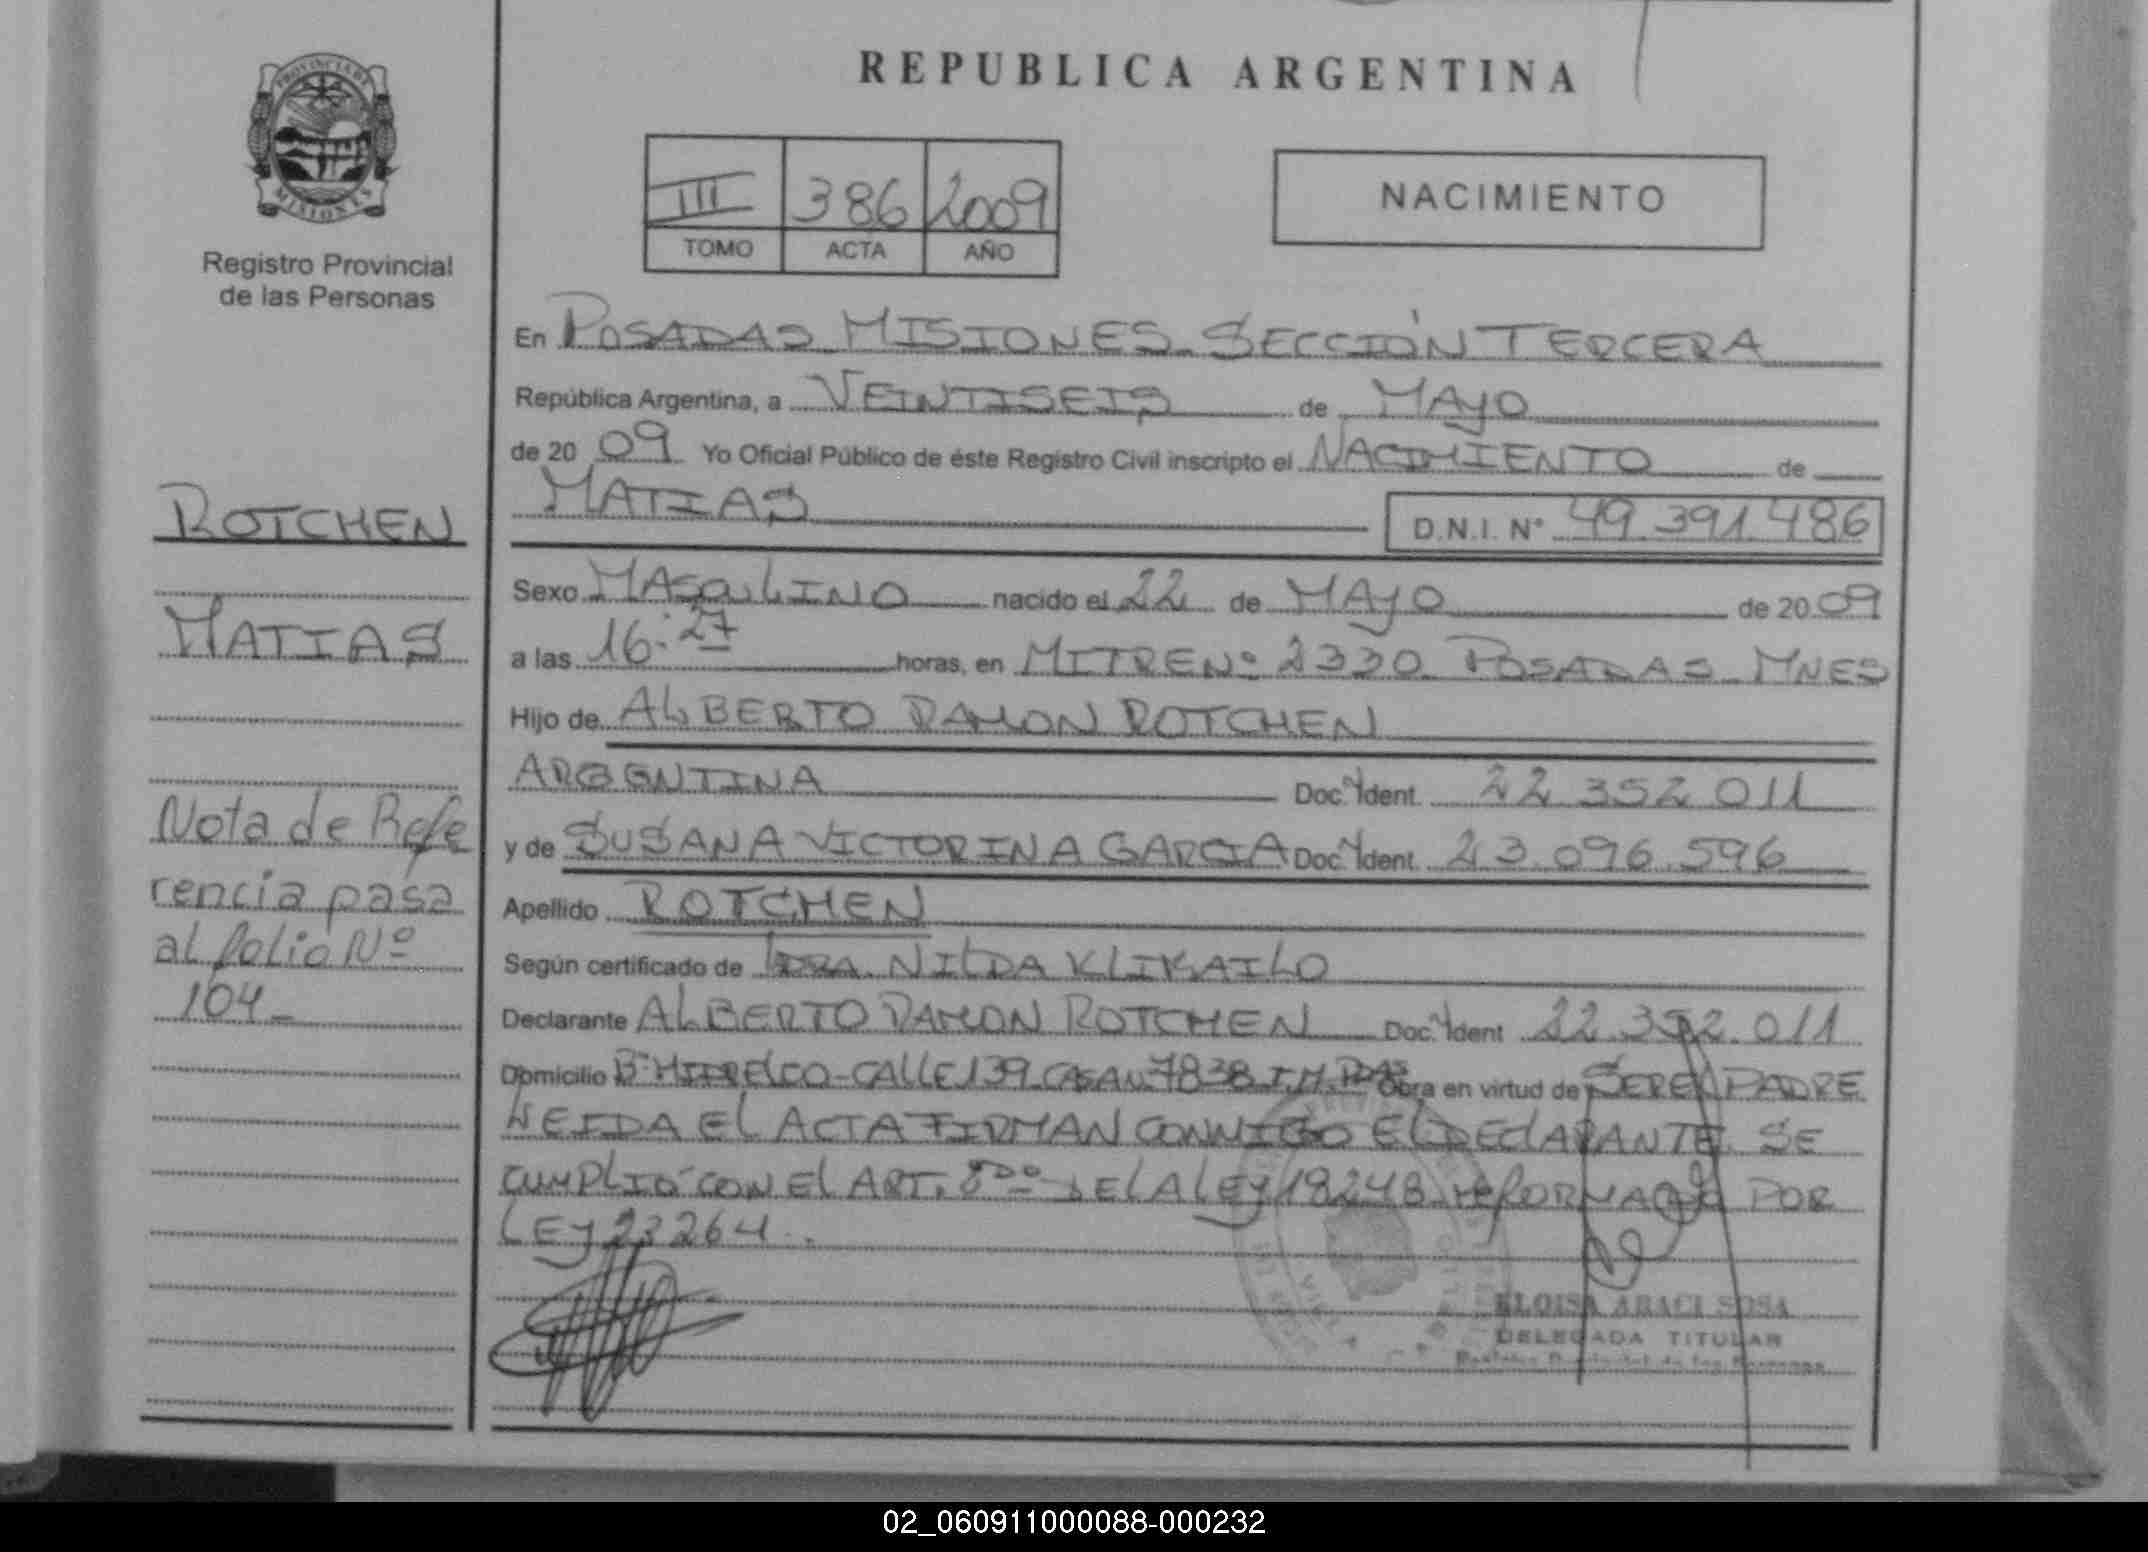 PROVINCIA DE
MISIONES
Registro Provincial
de las Personas
ROTCHEN
MATIAS
Nota de Refe
rencia pasa
al folio Nº
104_
REPUBLICA ARGENTINA
III 386 2009
TOMO ACTA AÑO
NACIMIENTO
En POSADAS MISIONES SECCIÓN TERCERA
República Argentina, a VEINTISEIS de MAYO
de 2009 Yo Oficial Público de éste Registro Civil inscripto el NACIMIENTO de
MATIAS D.N.I. Nº 49.391.486
Sexo MASCULINO nacido el 22 de MAYO de 2009
a las 16:27 horas, en MITRE Nº 2330 POSADAS MNES
Hijo de ALBERTO RAMON ROTCHEN
ARGENTINA Doc. Ident. 22.352.011
y de SUSANA VICTORINA GARCIA Doc. Ident. 23.096.596
Apellido ROTCHEN
Según certificado de DRA. NILDA KLIKAILO
Declarante ALBERTO RAMON ROTCHEN Doc. Ident 22.352.011
Domicilio Bº CALLE 139 CASA Nº 7838 Obra en virtud de SER EL PADRE
LEIDA EL ACTA FIRMAN CONMIGO EL DECLARANTE. SE
CUMPLIÓ CON EL ART. DE LA LEY 18248 reFORMADO POR
LEY 23264..
ELOISA ARACI SOSA
DELEGADA TITULAR
Registro Provincial de las Personas
02_060911000088-000232